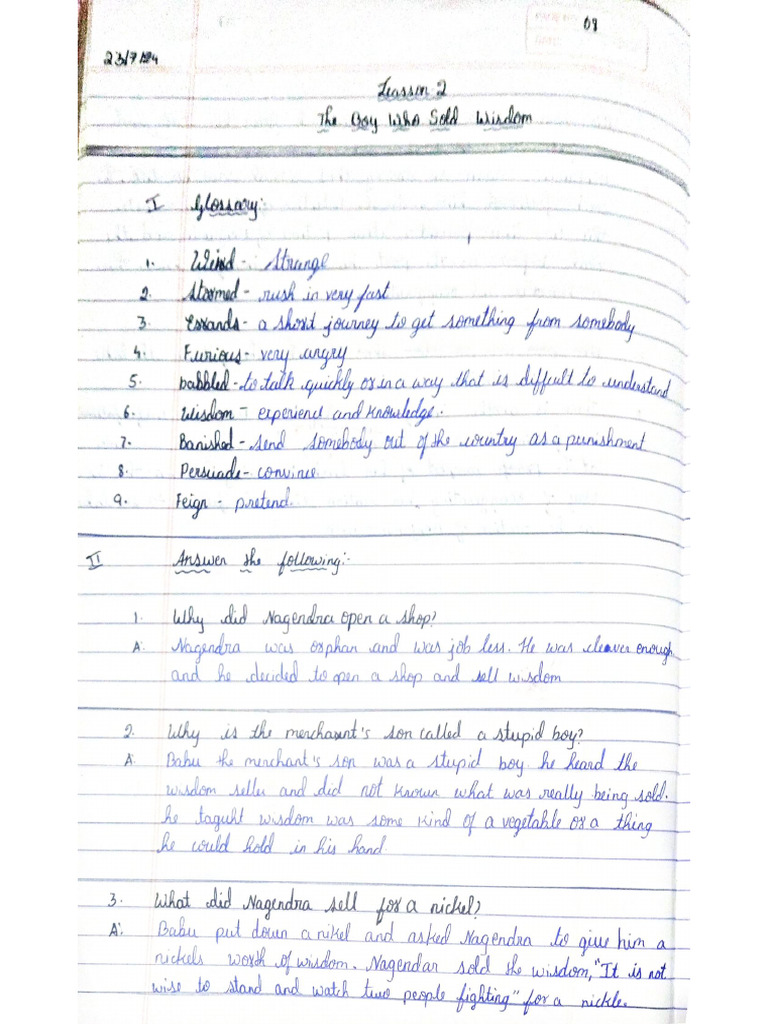 08
23/7/24
Leasson 2
The Boy Who Sold Wisdom
I Glossary:
1. Weird - Strange
2. Stormed - rush in very fast
3. Errands - a short journey to get something from somebody
4. Furious - very angry
5. babbled - to talk quickly or in a way that is difficult to understand
6. Wisdom - experience and knowledge.
7. Banished - send somebody out of the country as a punishment
8. Persuade - convince
9. Feign - pretend.
II Answer the following:
1. Why did Nagendra open a shop?
A: Nagendra was orphan and was job less. He was cleaver enough
and he decided to open a shop and sell wisdom
2. Why is the merchant's son called a stupid boy?
A: Babu the merchant's son was a stupid boy. he heard the
wisdom seller and did not known what was really being sold.
he taguht wisdom was some kind of a vegetable or a thing
he could hold in his hand
3. What did Nagendra sell for a nickel?
A: Babu put down a nikel and asked Nagendra to give him a
nickels worth of wisdom. Nagendar sold the wisdom, "It is not
wise to stand and watch two people fighting" for a nickle.